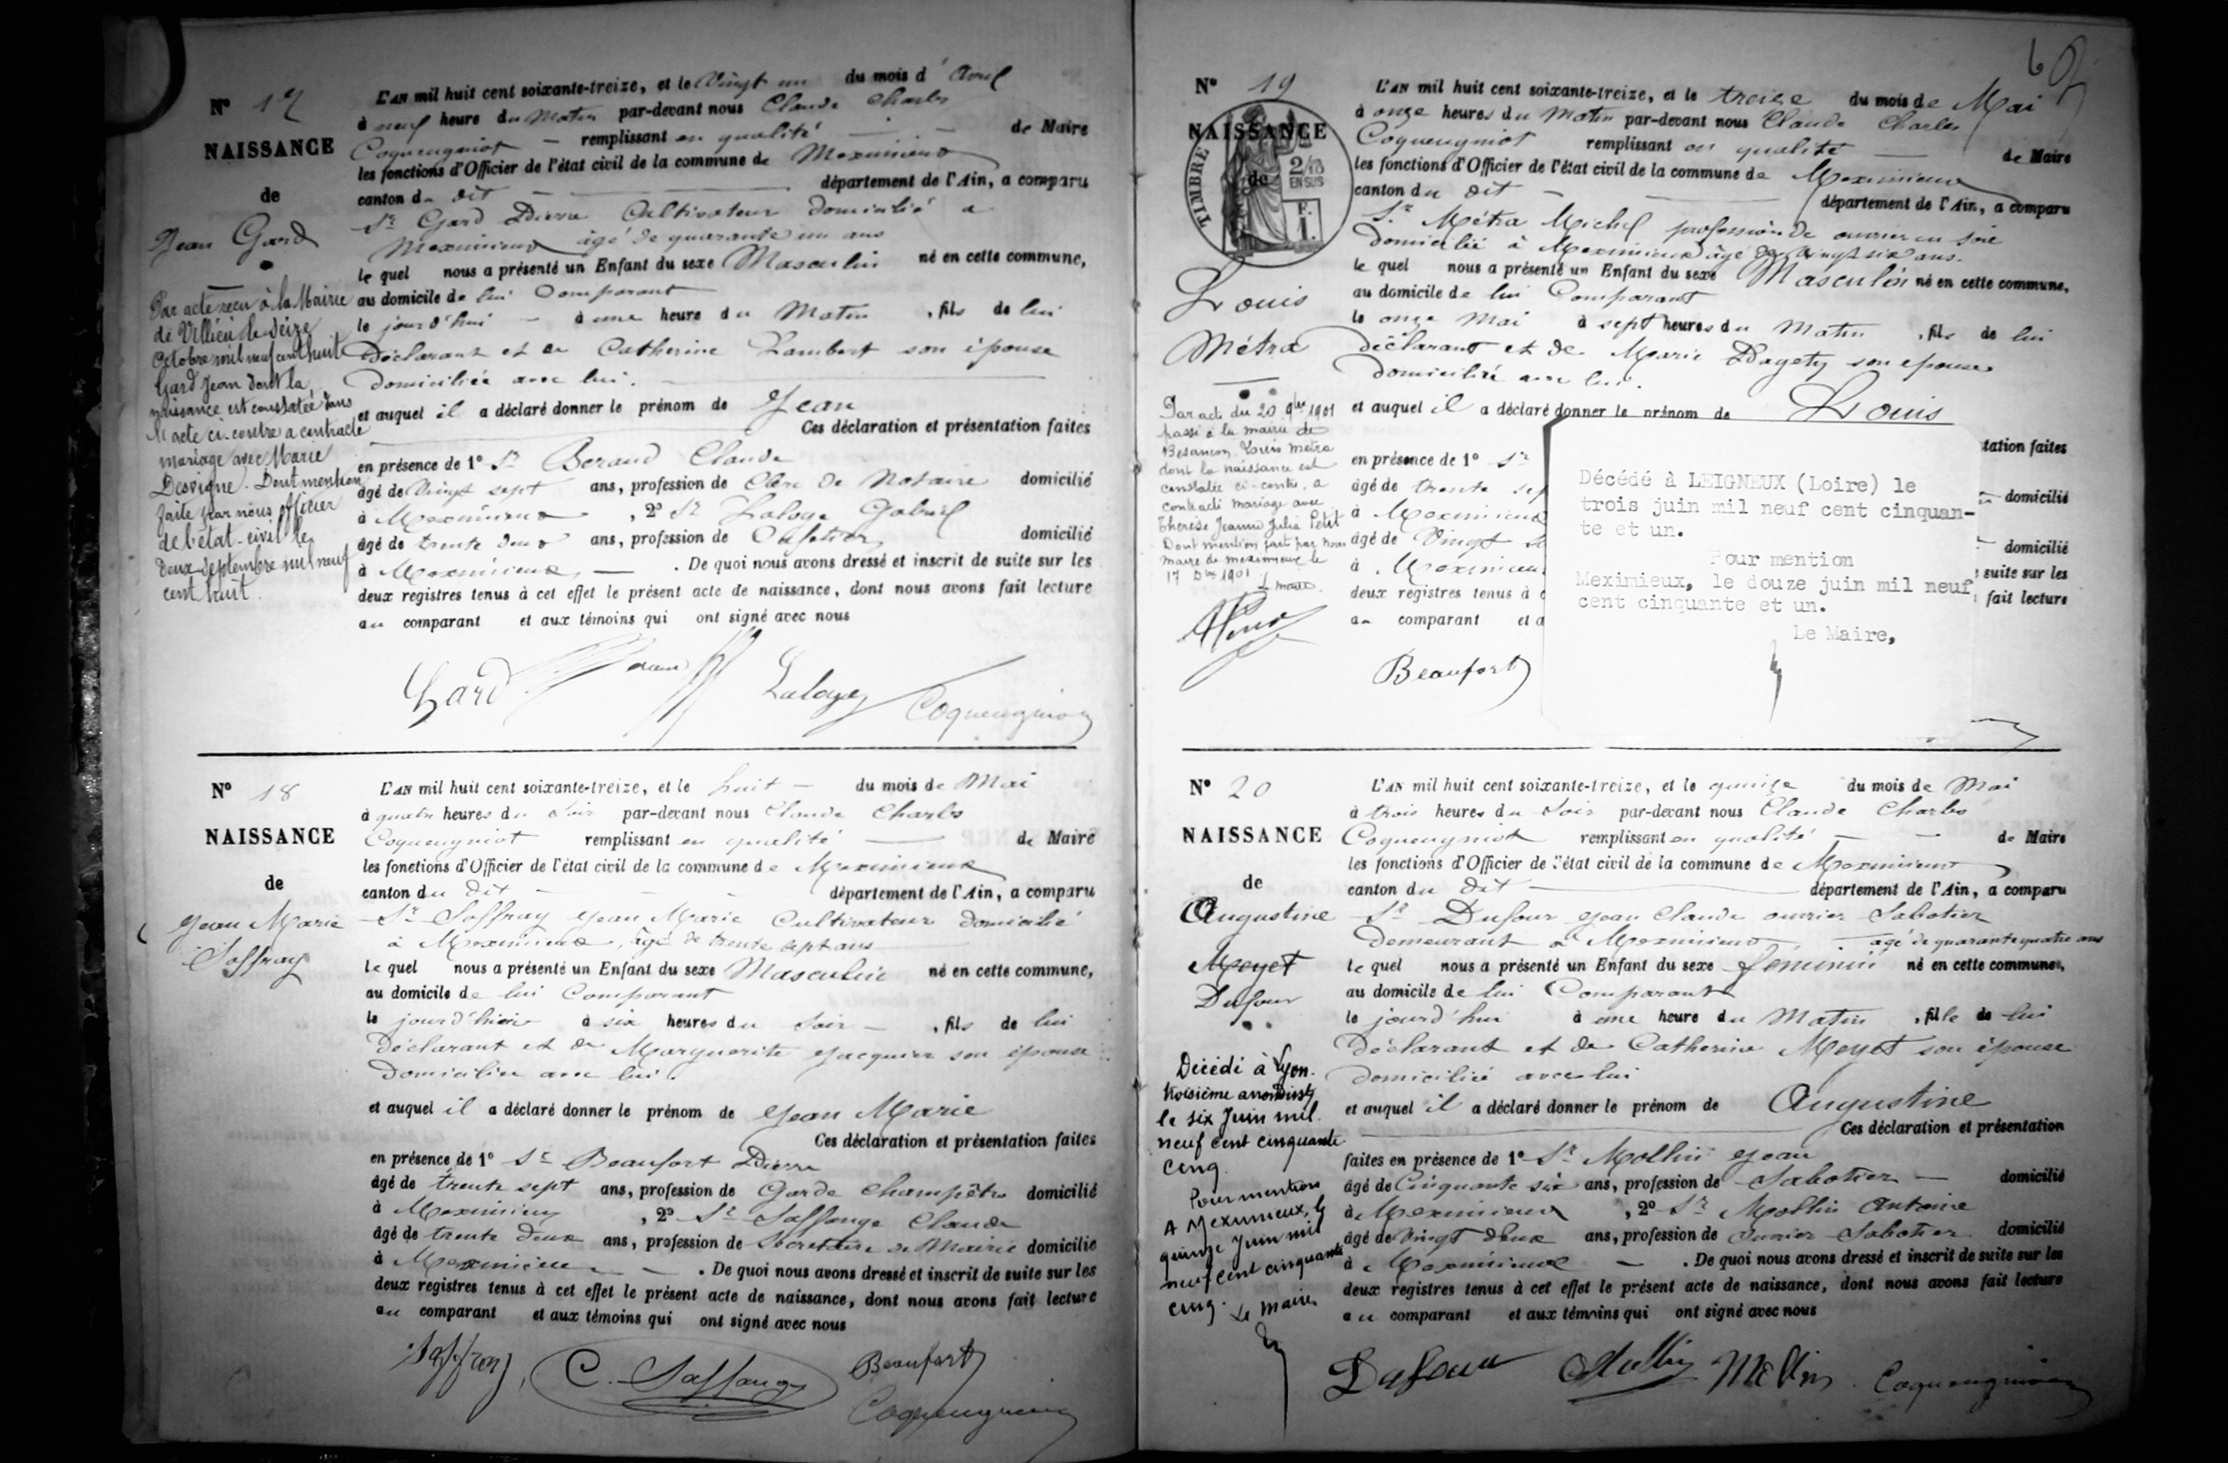 N° 17
NAISSANCE
de
Jean Gard
Par acte reçu à la Mairie
de Villieu le seize
Octobre mil neuf cent huit
Gard Jean dont la
naissance est constatée dans
l'acte ci-contre a contracté
mariage avec Marie
Desvigne. Dont mention
faite par nous officier
de l'état-civil le
deux septembre mil neuf
cent huit.
L'AN mil huit cent soixante-treize, et le Vingt un du mois d'Avril
à neuf heure du Matin par-devant nous Claude Charles
Coqueugniot remplissant en qualité de Maire
les fonctions d'Officier de l'état civil de la commune de Meximieux
canton du dit département de l'Ain, a comparu
Sr Gard Pierre Cultivateur domicilié a
Meximieux âgé de quarante un ans
le quel nous a présenté un Enfant du sexe Masculin né en cette commune,
au domicile de lui Comparant
le jourd'hui à une heure du Matin, fils de lui
Déclarant et de Catherine Lambert son épouse
domiciliée avec lui.
et auquel il a déclaré donner le prénom de Jean
Ces déclaration et présentation faites
en présence de 1° Sr Beraud Claude
âgé de Vingt sept ans, profession de Clerc de Notaire domicilié
à Meximieux, 2° Sr Laloge Gabriel
âgé de trente deux ans, profession de Cafetier domicilié
à Meximieux. De quoi nous avons dressé et inscrit de suite sur les
deux registres tenus à cet effet le présent acte de naissance, dont nous avons fait lecture
au comparant et aux témoins qui ont signé avec nous
Gard Beraud Laloge Coqueugniot
N° 18
NAISSANCE
de
Jean Marie
Soffray
L'AN mil huit cent soixante-treize, et le huit du mois de Mai
à quatre heures du Soir par-devant nous Claude Charles
Coqueugniot remplissant en qualité de Maire
les fonctions d'Officier de l'état civil de la commune de Meximieux
canton du dit département de l'Ain, a comparu
Sr Soffray Jean Marie Cultivateur domicilié
à Meximieux, âgé de trente sept ans
le quel nous a présenté un Enfant du sexe Masculin né en cette commune,
au domicile de lui Comparant
le jourd'hier à six heures du Soir, fils de lui
Déclarant et de Marguerite Jacquier son épouse
Domiciliée avec lui.
et auquel il a déclaré donner le prénom de Jean Marie
Ces déclaration et présentation faites
en présence de 1° Sr Beaufort Pierre
âgé de trente sept ans, profession de Garde Champêtre domicilié
à Meximieux, 2° Sr Saffange Claude
âgé de trente deux ans, profession de Secretaire de Mairie domicilié
à Meximieux. De quoi nous avons dressé et inscrit de suite sur les
deux registres tenus à cet effet le présent acte de naissance, dont nous avons fait lecture
au comparant et aux témoins qui ont signé avec nous
Soffray C. Saffange Beaufort
Coqueugniot
N° 19
NAISSANCE
de
TIMBRE
2/10
EN SUS
F.
1.
Louis
Métra
Par acte du 20 9bre 1901
passé à la mairie de
Besançon, Louis Metra
dont la naissance est
constatée ci-contre, a
contracté mariage avec
Thérèse Jeanne Julia Petit
Dont mention fait par nous
maire de meximieux le
17 Dbre 1901
L'AN mil huit cent soixante-treize, et le treize du mois de Mai
à onze heures du Matin par-devant nous Claude Charles
Coqueugniot remplissant en qualité de Maire
les fonctions d'Officier de l'état civil de la commune de Meximieux
canton du dit département de l'Ain, a comparu
Sr Métra Michel profession de ouvrier en soie
Domicilié à Meximieux âgé de Vingt six ans.
le quel nous a présenté un Enfant du sexe Masculin né en cette commune,
au domicile de lui Comparant
le onze Mai à sept heures du Matin, fils de lui
déclarant et de Marie Pagety son epouse
Domiciliée avec lui.
et auquel il a déclaré donner le prénom de Louis
tation faites
en présence de 1° Sr
âgé de trente sep domicilié
à Meximieux
âgé de Vingt domicilié
à Meximieux suite sur les
deux registres tenus à fait lecture
au comparant et a
Beaufort
Décédé à LEIGNEUX (Loire) le
trois juin mil neuf cent cinquan-
te et un.
Pour mention
Meximieux, le douze juin mil neuf
cent cinquante et un.
Le Maire,
N° 20
NAISSANCE
de
Augustine
Meyet
Dufour
Décédé à Lyon
troisième arrondisst
le six Juin mil
neuf cent cinquante
cinq.
Pour mention
A Meximieux, le
quinze Juin mil
neuf cent cinquante
cinq. Le Maire
L'AN mil huit cent soixante-treize, et le quinze du mois de Mai
à trois heures du Soir par-devant nous Claude Charles
Coqueugniot remplissant en qualité de Maire
les fonctions d'Officier de l'état civil de la commune de Meximieux
canton du dit département de l'Ain, a comparu
Sr Dufour Jean Claude ouvrier Sabotier
Demeurant à Meximieux âgé de quarante quatre ans
le quel nous a présenté un Enfant du sexe féminin né en cette commune,
au domicile de lui Comparant
le jourd'hui à une heure du Matin, fille de lui
Déclarant et de Catherine Meyet son épouse
Domiciliée avec lui
et auquel il a déclaré donner le prénom de Augustine
Ces déclaration et présentation
faites en présence de 1° Sr Mollin Jean
âgé de Cinquante six ans, profession de Sabotier domicilié
à Meximieux, 2° Sr Mollin Antoine
âgé de Vingt deux ans, profession de Ouvrier Sabotier domicilié
à Meximieux. De quoi nous avons dressé et inscrit de suite sur les
deux registres tenus à cet effet le présent acte de naissance, dont nous avons fait lecture
au comparant et aux témoins qui ont signé avec nous
Dufour Mollin Mollin Coqueugniot